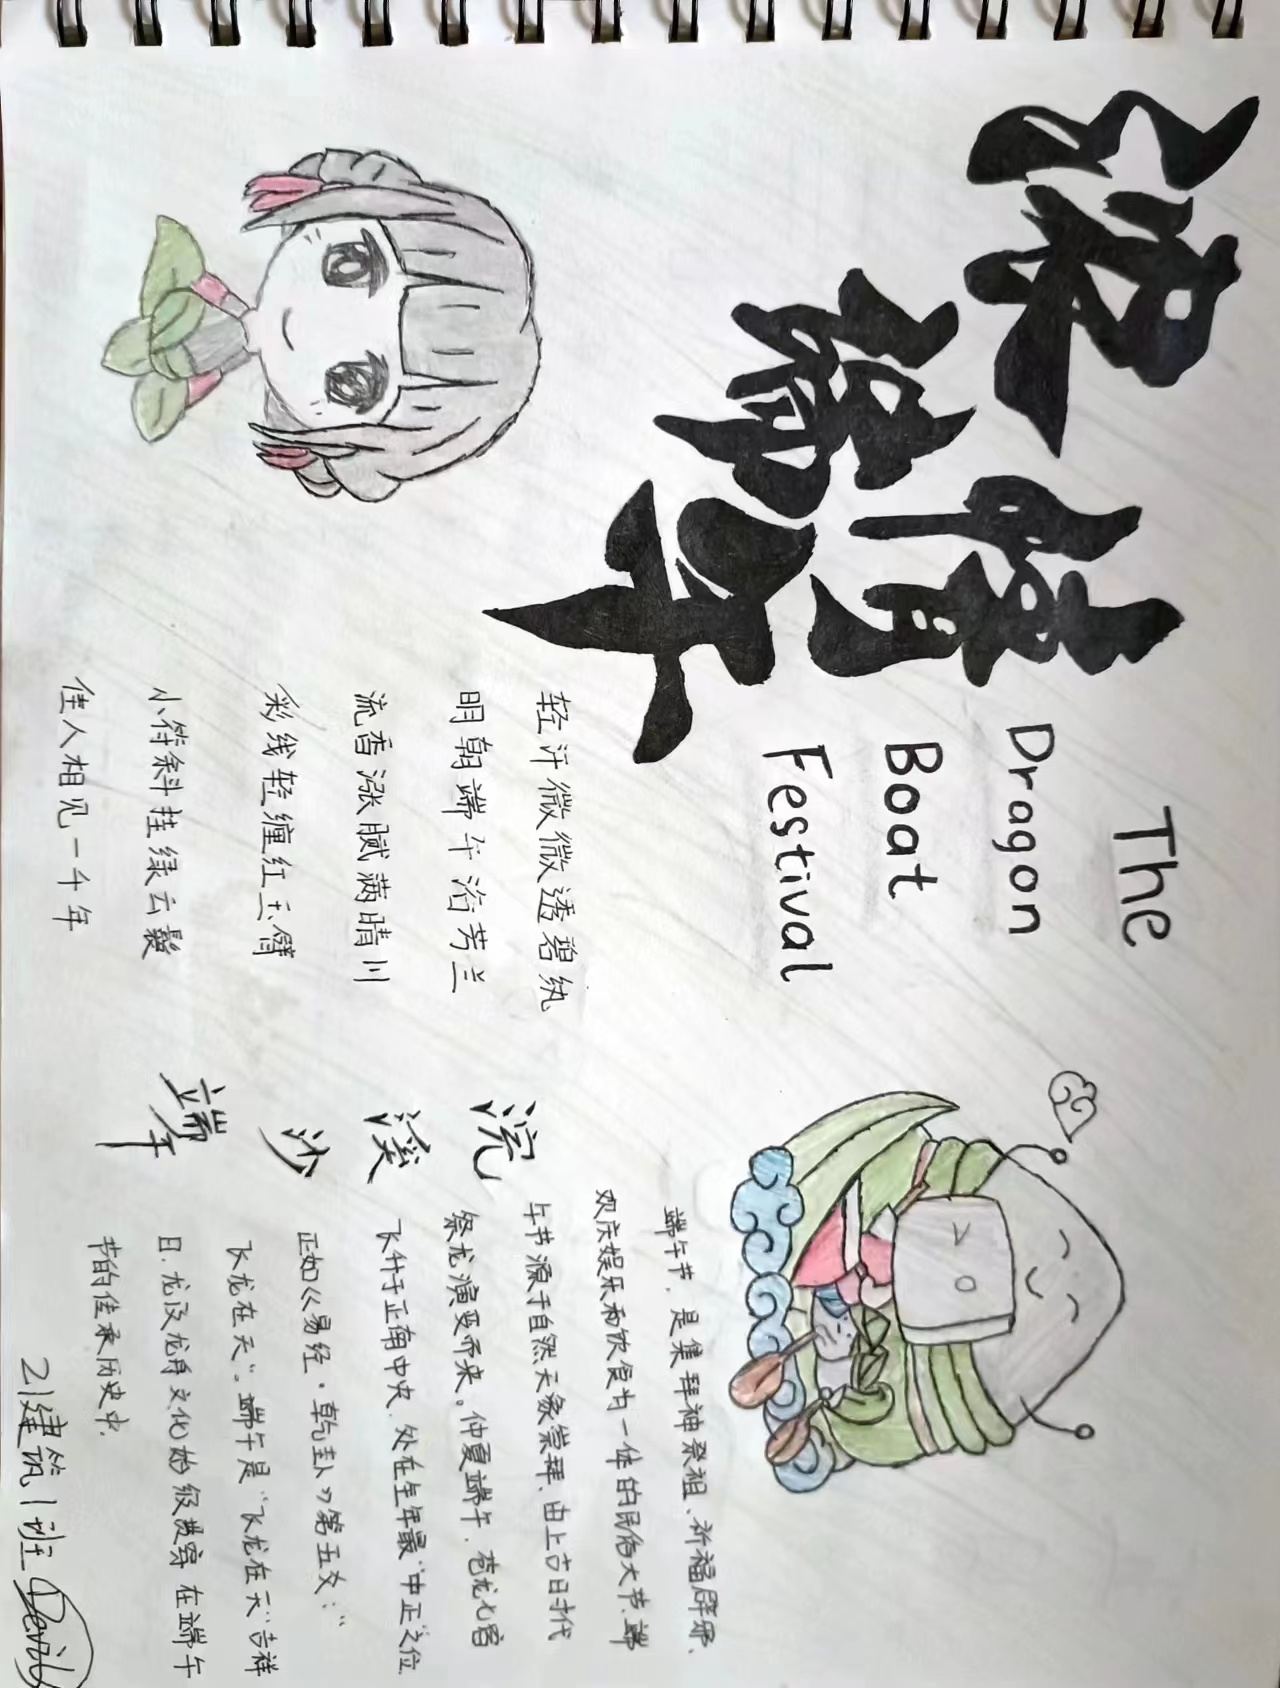 浓情
端午
The
Dragon
Boat
Festival
轻汗微微透碧纨
明朝端午浴芳兰
流香涨腻满晴川
彩线轻缠红玉臂
小符斜挂绿云鬟
佳人相见一千年
浣
溪
沙
端午
端午节，是集拜神祭祖、祈福辟邪、
欢庆娱乐和饮食为一体的民俗大节、端
午节源于自然天象崇拜、由上古时代
祭龙演变而来。仲夏端午，苍龙七宿
飞升于正南中央，处在全年最“中正”之位
正如《易经·乾卦》第五爻：“
飞龙在天”。端午是“飞龙在天”吉祥
日，龙及龙舟文化始终贯穿在端午
节的传承历史中.
21建筑1班